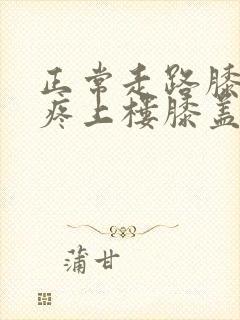 正常走路膝
疼上楼膝盖
蒲甘